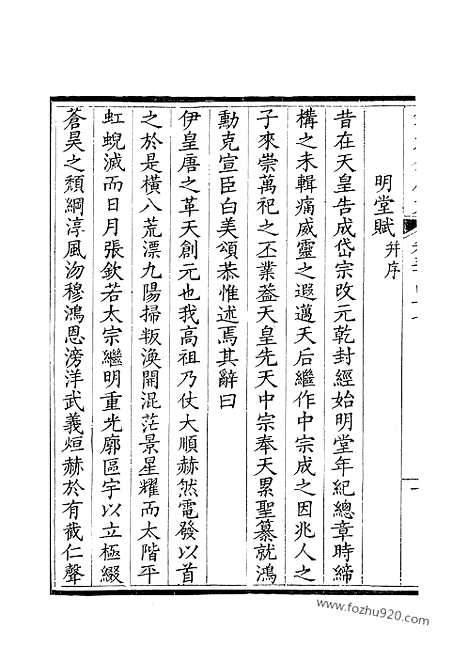 明堂賦并序
昔在天皇告成岱宗改元乾封經始明堂年紀總章時締
構之未輯痛威靈之遐邁天后繼作中宗成之因兆人之
子來崇萬祀之丕業葢天皇先天中宗奉天累聖纂就鴻
勳克宣臣白美頌恭惟述焉其辭曰
伊皇唐之革天創元也我高祖乃仗大順赫然電發以首
之於是橫八荒漂九陽掃叛渙開混茫景星耀而太階平
虹蜺滅而日月張欽若太宗繼明重光廓區宇以立極綴
蒼昊之頹綱淳風沕穆鴻恩滂洋武義烜赫於有截仁聲
www.fozhu920.com